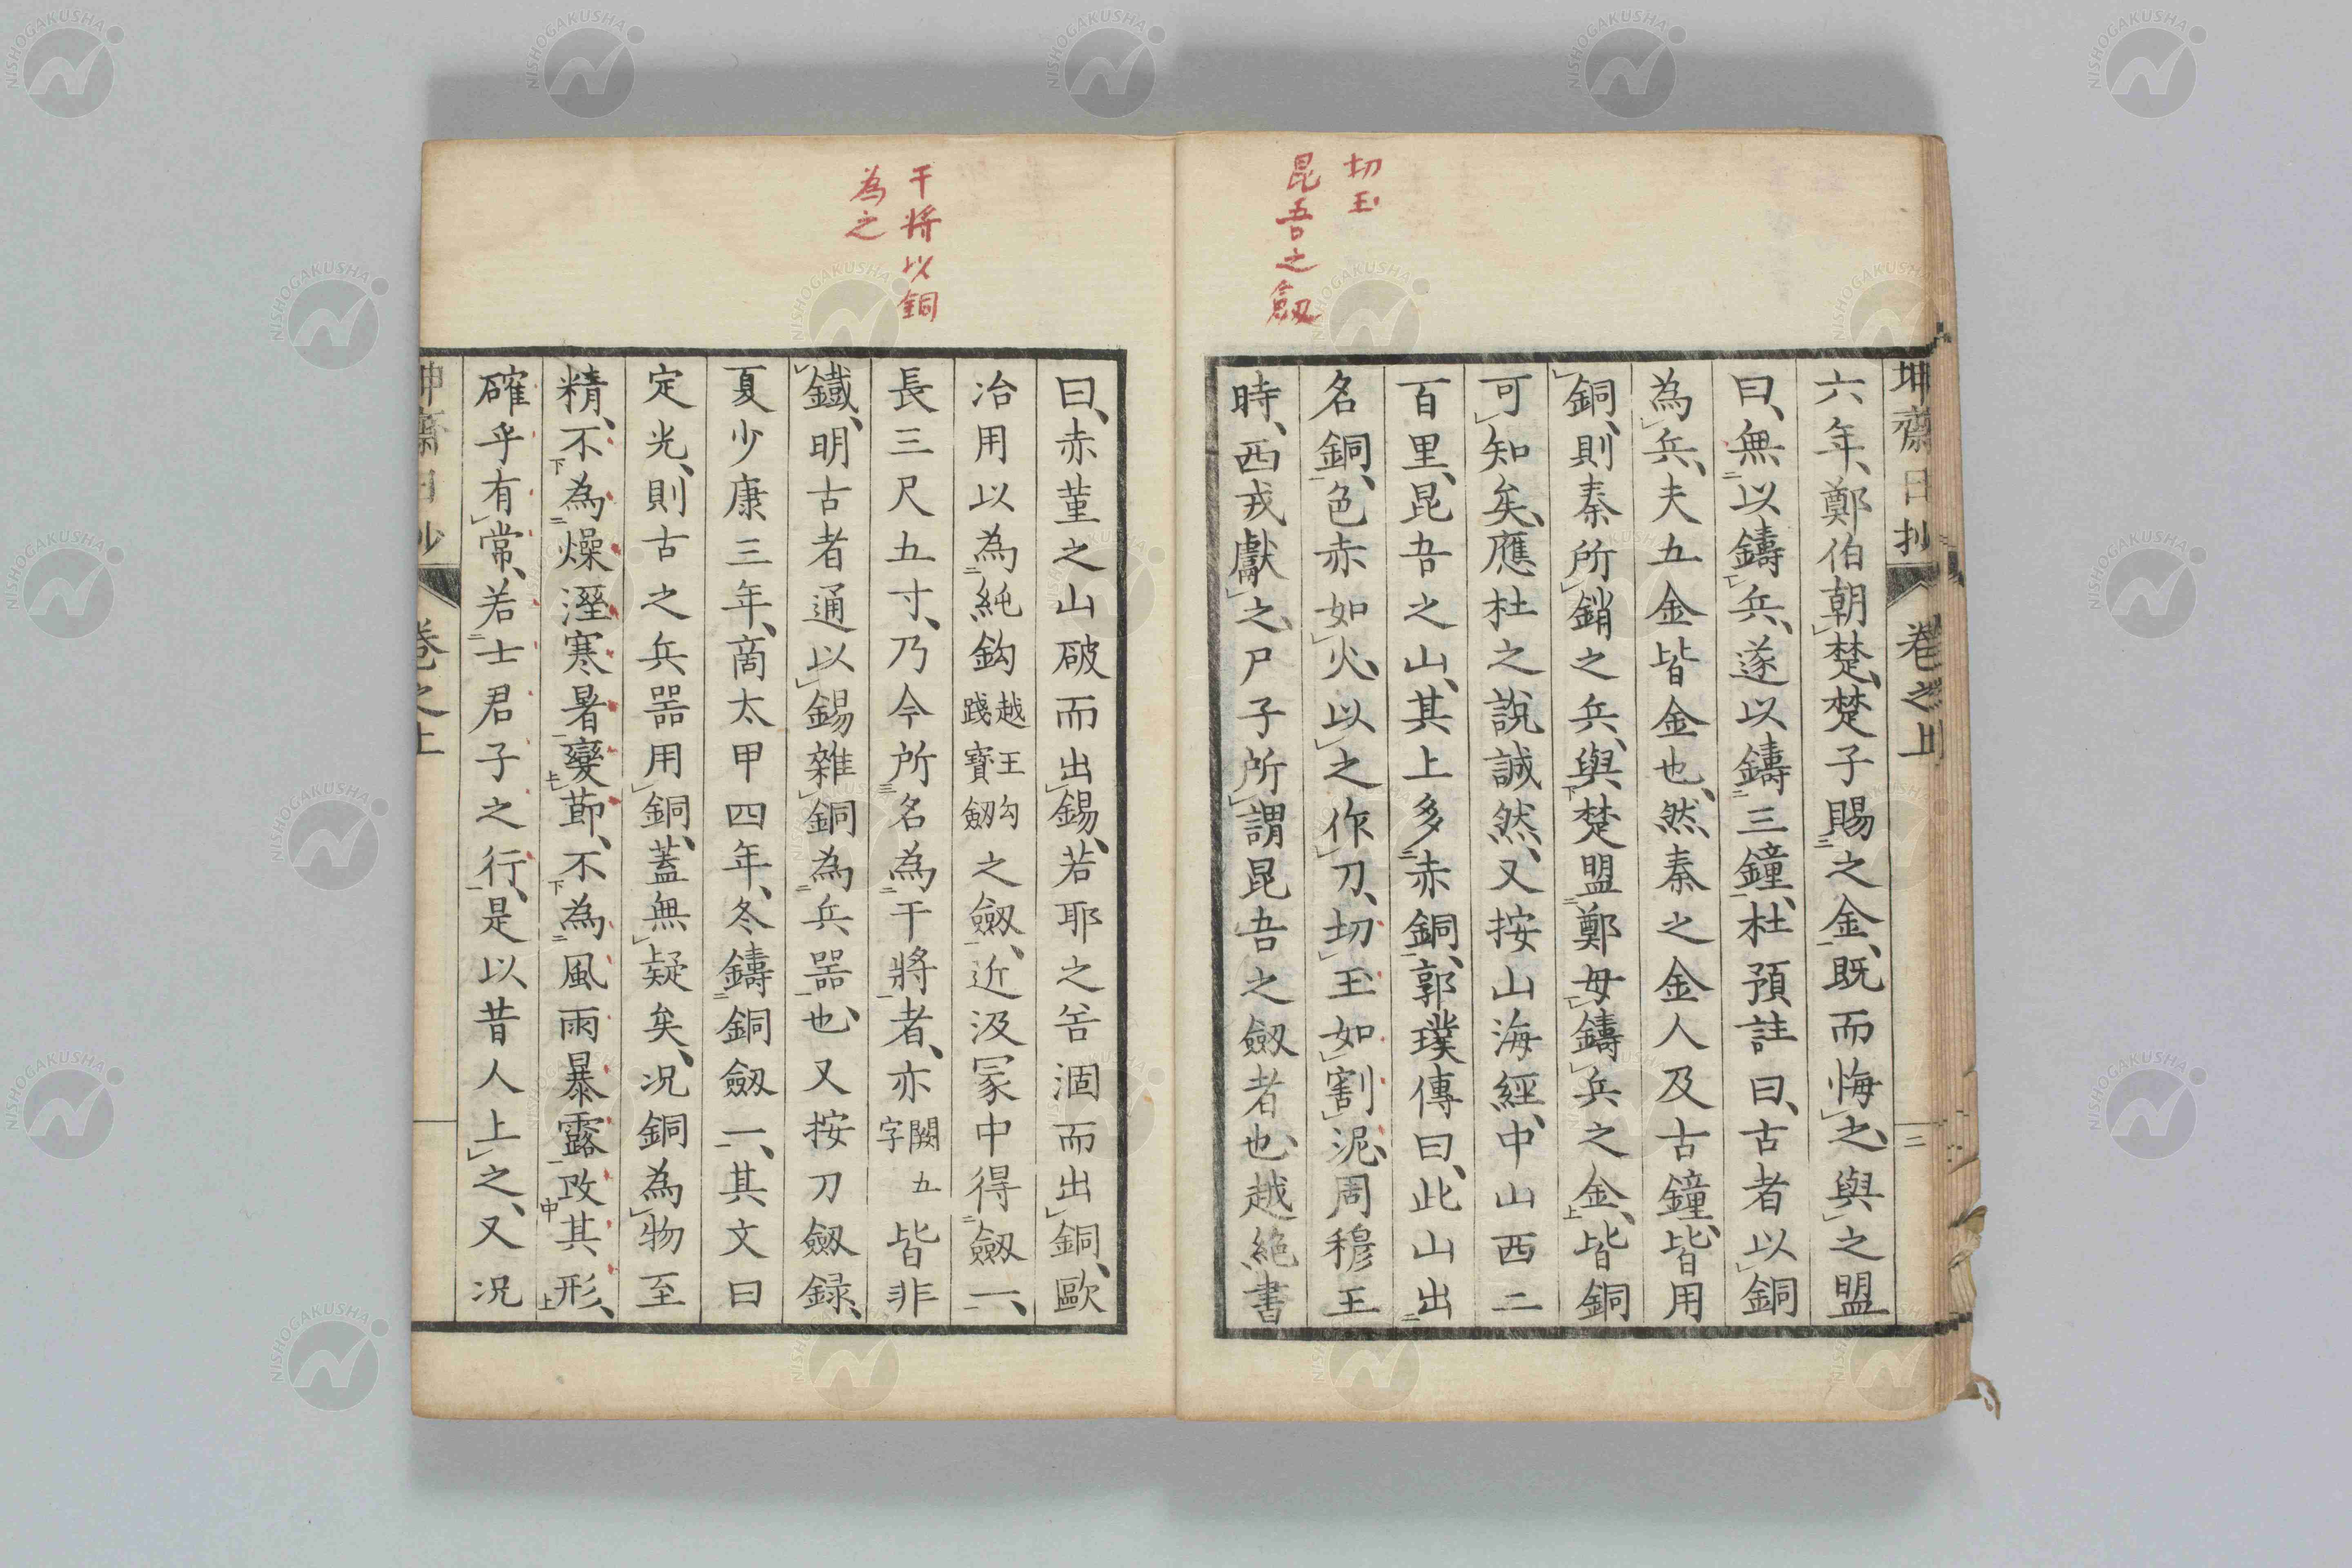 切玉
昆吾之劔
坤齋日抄 卷之上 二
六年、鄭伯朝楚、楚子賜之金、既而悔之、與之盟
曰、無以鑄兵、遂以鑄三鐘、杜預註曰、古者以銅
為兵、夫五金皆金也、然秦之金人及古鐘、皆用
銅、則秦所銷之兵、與楚盟鄭毋鑄兵之金、皆銅
可知矣、應杜之説誠然、又按山海經、中山西二
百里、昆吾之山、其上多赤銅、郭璞傳曰、此山出
名銅、色赤如火、以之作刀、切玉如割泥、周穆王
時、西戎獻之、尸子所謂昆吾之劔者也、越絶書
干將以銅
為之
曰、赤堇之山破而出錫、若耶之谷涸而出銅、歐
冶用以為純鈎越王勾踐寶劔之劔、近汲冢中得劔一、
長三尺五寸、乃今所名為干將者、亦闕五字皆非
鐵、明古者通以錫雜銅為兵器也、又按刀劔録、
夏少康三年、商太甲四年、冬鑄銅劔一、其文曰
定光、則古之兵器用銅、蓋無疑矣、况銅為物至
精、不為燥溼寒暑變莭、不為風雨暴露改其形、
確乎有常、若士君子之行、是以昔人上之、又况
坤齋日抄 卷之上
NISHOGAKUSHA